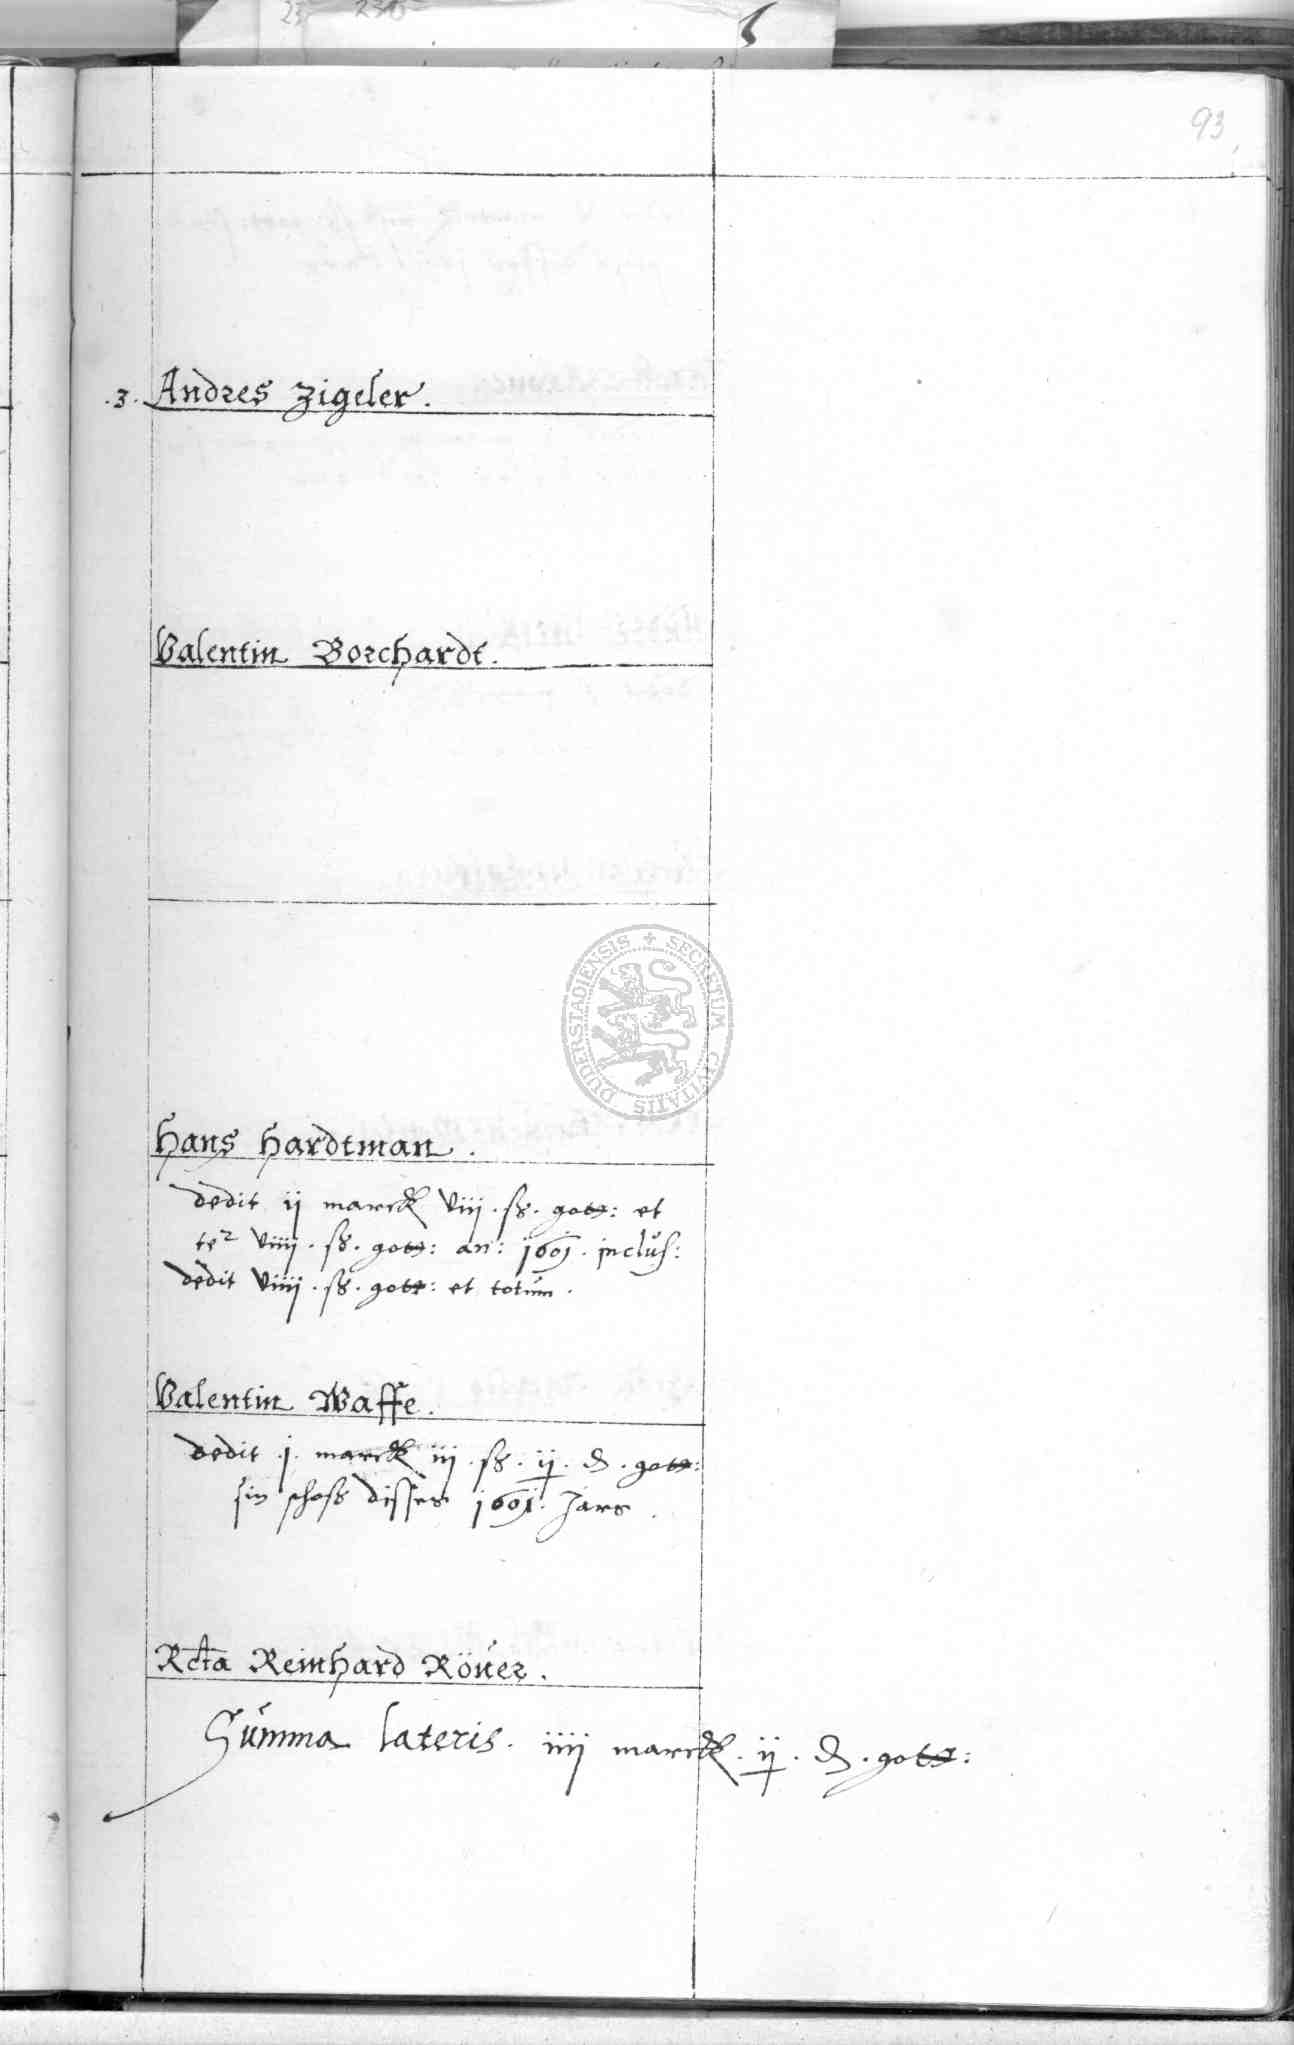 23 235
93
.3. Andres Zigeler.
Valentin Borchardt.
SECRETUM CIVITATIS DUDERSTADIENSIS
Hans Hardtman.
dedit ij marck viij . ß . gott: et
ter viiij . ß . gott: an: 1601 . inclus:
dedit viiij . ß . gott: et totum .
Valentin Waffe.
dedit .j. marck iij . ß . ij . ₰ . gott:
sin schoss disses 1601. Jars .
Rcta Reinhard Röuer.
Summa lateris. iiij marck . ij . ₰ . gott: